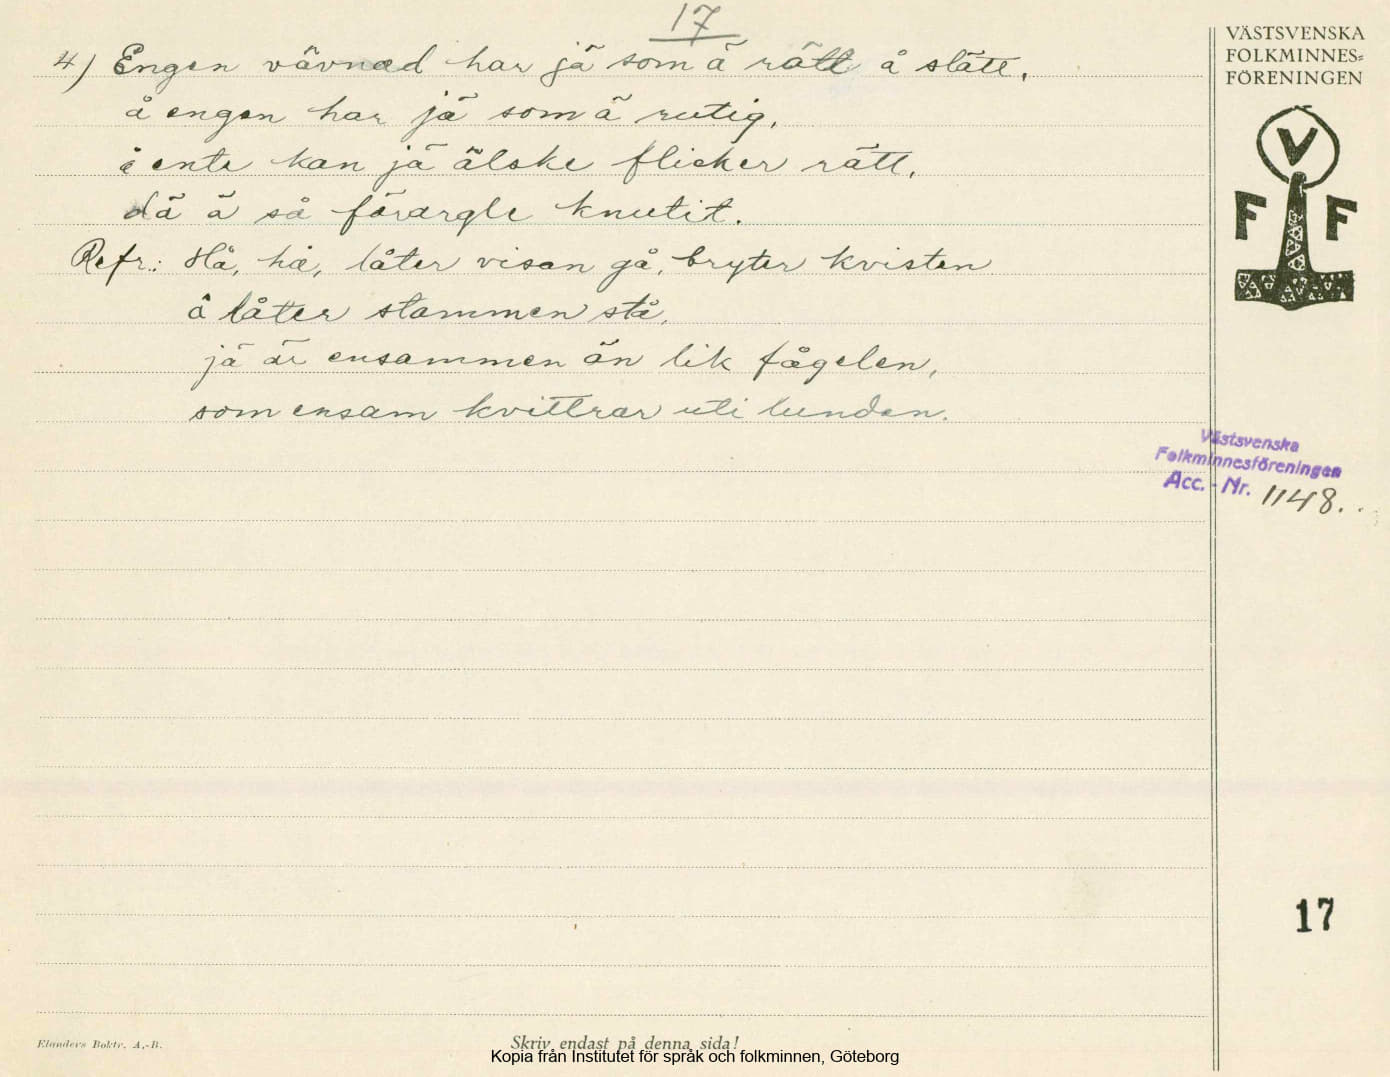 17
4) Engen vävnad har jä som ä rätt å slätt,
å engen har jä som ä rutig,
å ente kan jä älske flicker rätt,
dä ä så förargle knutit.
Refr.: Hå, hå, låter visan gå, bryter kvisten
å låter stammen stå,
jä är ensammen än lik fågelen,
som ensam kvittrar uti lunden.
VÄSTSVENSKA
FOLKMINNES=
FÖRENINGEN
V
F F
Västsvenska
Folkminnesföreningen
Acc. - Nr. 1148.
17
Elanders Boktr. A.-B.
Skriv endast på denna sida!
Kopia från Institutet för språk och folkminnen, Göteborg